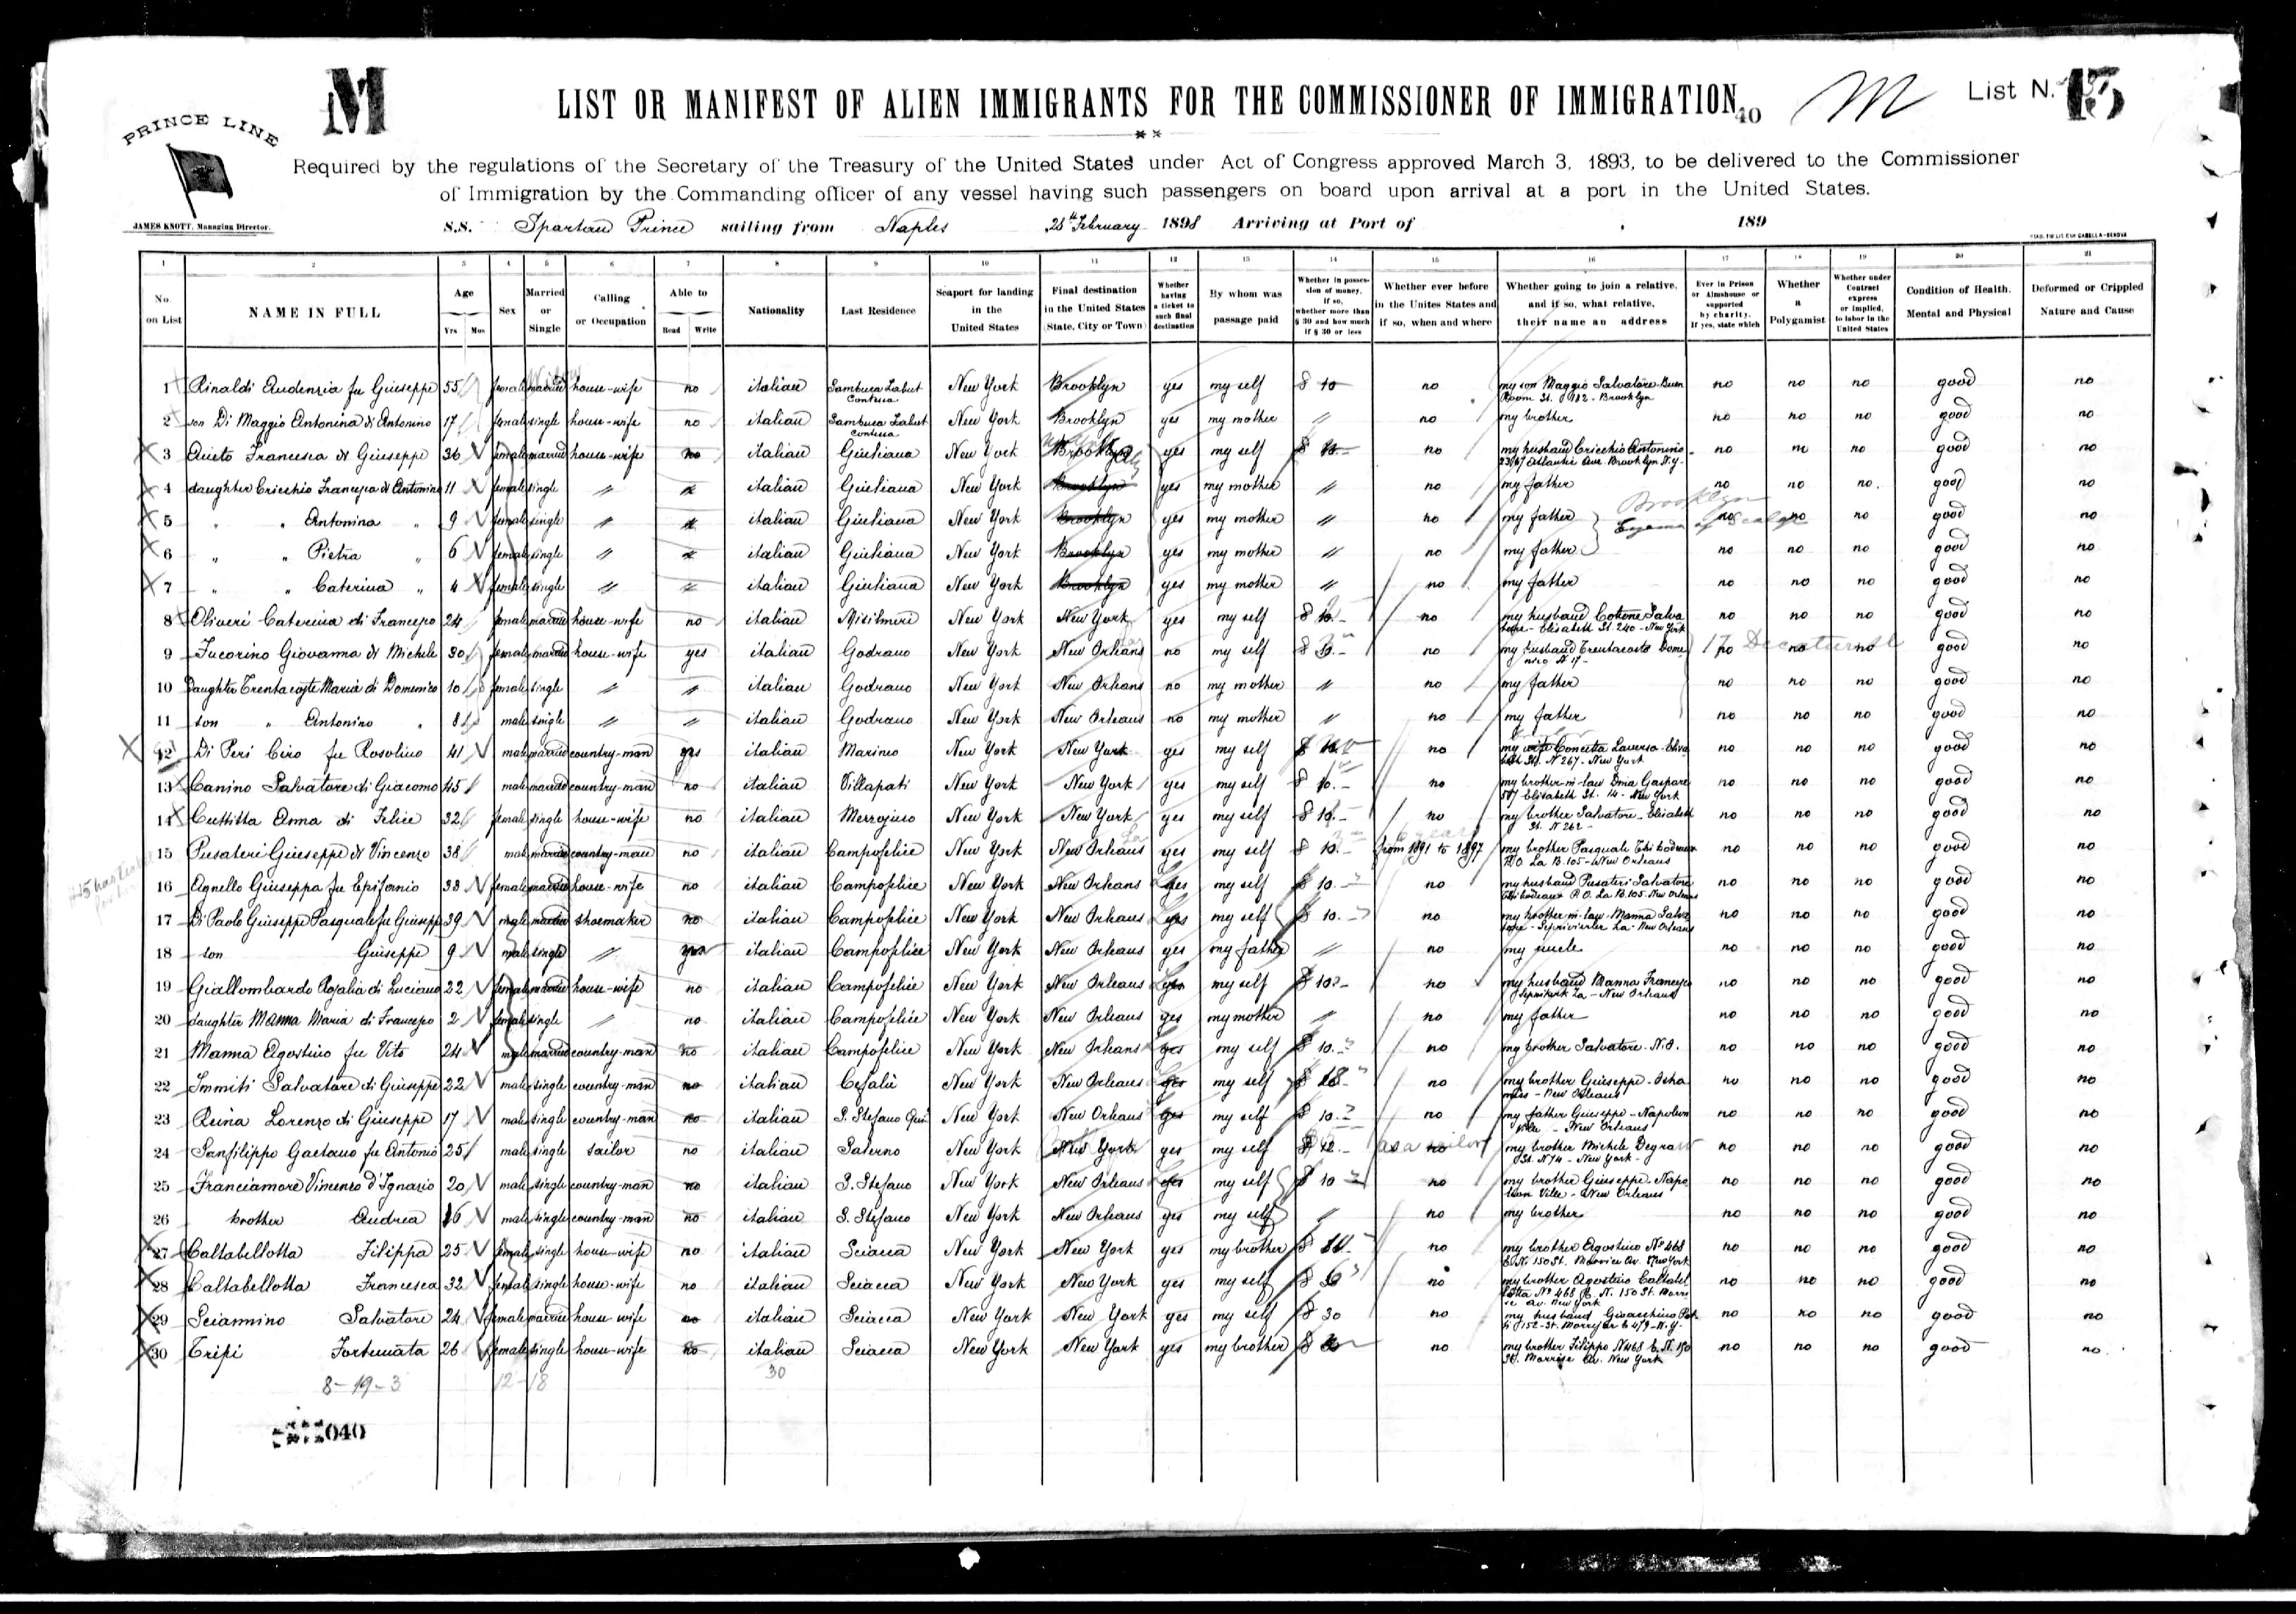 M
LIST OR MANIFEST OF ALIEN IMMIGRANTS FOR THE COMMISSIONER OF IMMIGRATION
40 M List N. 15
PRINCE LINE
Required by the regulations of the Secretary of the Treasury of the United States under Act of Congress approved March 3, 1893, to be delivered to the Commissioner
of Immigration by the Commanding officer of any vessel having such passengers on board upon arrival at a port in the United States.
JAMES KNOTT, Managing Director.
S.S. Spartan Prince sailing from Naples February 1898 Arriving at Port of 189
1 2 3 4 5 6 7 8 9 10 11 12 13 14 15 16 17 18 19 20 21
No. on List NAME IN FULL Age Yrs Mos Sex Married or Single Calling or Occupation Able to Read Write Nationality Last Residence Seaport for landing in the United States Final destination in the United States (State, City or Town) Whether having a ticket to such final destination By whom was passage paid Whether in possession of money, if so, whether more than $ 30 and how much if $ 30 or less Whether ever before in the Unites States and if so, when and where Whether going to join a relative, and if so, what relative, their name an address Ever in Prison or Almshouse or supported by charity. If yes, state which Whether a Polygamist Whether under Contract express or implied, to labor in the United States Condition of Health. Mental and Physical Deformed or Crippled Nature and Cause
1 Rinaldi Audenzia fu Giuseppe 55 female married house-wife no italian Sambuca Zabut Contesa New York Brooklyn yes my self $ 10 no my son Maggio Salvatore Brooklyn no no no good no
2 Di Maggio Antonina di Antonino 17 female single house-wife no italian Sambuca Zabut Contesa New York Brooklyn yes my mother // no my brother no no no good no
3 Francesca di Giuseppe 36 female married house-wife no italian Giuliana New York Brooklyn yes my self $ 10 no my husband Cricchio Antonino Atlantic Ave. Brooklyn N.y. no no no good no
4 daughter Cricchio Francesca di Antonino 11 female single // italian Giuliana New York Brooklyn yes my mother // no my father no no no good no
5 " " Antonina " 9 female single // italian Giuliana New York Brooklyn yes my mother // no my father Brooklyn no no no good no
6 " " Pietra " 6 female single // italian Giuliana New York Brooklyn yes my mother // no my father no no no good no
7 " " Caterina " 4 female single // // italian Giuliana New York Brooklyn yes my mother // no my father no no no good no
8 Oliveri Caterina di Francesco 24 female married house-wife no italian Misilmeri New York New York yes my self $ 10 no my husband Cotone Salvatore - Elisabeth St. 240 - New York no no no good no
9 Fucorino Giovanna di Michele 30 female married house-wife yes italian Godrano New York New Orleans no my self $ 30 no my husband Trentacosta Domenico N 17 - 17 Decatur St no no no good no
10 Daughter Trentacoste Maria di Domenico 10 female single // // italian Godrano New York New Orleans no my mother // no my father no no no good no
11 son " Antonino " 8 male single // // italian Godrano New York New Orleans no my mother // no my father no no no good no
12 Di Peri Ciro fu Rosolino 41 male married country-man yes italian Marineo New York New York yes my self $ no my wife Concetta N 267 - New York no no no good no
13 Canino Salvatore di Giacomo 45 male married country-man no italian Villapati New York New York yes my self $ 10.- no my brother-in-law Gaspare Elisabeth St. 14 - New York no no no good no
14 Cuttitta Anna di Felice 32 female single house-wife no italian Mezzojuso New York New York yes my self $ 10.- no my brother Salvatore - Elisabeth St. N 262 - no no no good no
15 Pusateri Giuseppe di Vincenzo 38 male married country-man no italian Campofelice New York New Orleans yes my self $ 10.- from 1891 to 1897 my brother Pasquale Thibodeaux P.O. La B.105 - New Orleans no no no good no
16 Agnello Giuseppa fu Epifanio 33 female married house-wife no italian Campofelice New York New Orleans yes my self $ 10.- no my husband Pusateri Salvatore Thibodeaux P.O. La B.105 New Orleans no no no good no
17 Di Paolo Giuseppe Pasquale fu Giuseppe 39 male married shoemaker no italian Campofelice New York New Orleans yes my self $ 10.- no my brother-in-law Manna Salvatore - La - New Orleans no no no good no
18 son Giuseppe 9 male single // italian Campofelice New York New Orleans yes my father // no my uncle no no no good no
19 Giallombardo Rosalia di Luciano 22 female married house-wife no italian Campofelice New York New Orleans yes my self $ 10 no my husband Manna Francesco La - New Orleans no no no good no
20 daughter Manna Maria di Francesco 2 female single // no italian Campofelice New York New Orleans yes my mother // no my father no no no good no
21 Manna Agostino fu Vito 24 male married country-man no italian Campofelice New York New Orleans yes my self $ 10.- no my brother Salvatore. N.O. no no no good no
22 Immiti Salvatore di Giuseppe 22 male single country-man no italian Cefalù New York New Orleans yes my self $ 18 no my brother Giuseppe - New Orleans no no no good no
23 Reina Lorenzo di Giuseppe 17 male single country-man no italian S. Stefano Quis New York New Orleans yes my self $ 10.- no my father Giuseppe - Napoleon Ville - New Orleans no no no good no
24 Sanfilippo Gaetano fu Antonio 25 male single sailor no italian Salerno New York New York yes my self $ 12.- as a sailor no my brother Michele St. N 74 - New York - no no no good no
25 Franciamore Vincenzo d'Ignazio 20 male single country-man no italian S. Stefano New York New Orleans yes my self $ 10 no my brother Giuseppe - Napoleon Ville - New Orleans no no no good no
26 brother Andrea 16 male single country-man no italian S. Stefano New York New Orleans yes my self // no my brother no no no good no
27 Caltabellotta Filippa 25 female single house-wife no italian Sciacca New York New York yes my brother $ no my brother Agostino No 468 E. N. 150 St. Morris Av. New York no no no good no
28 Caltabellotta Francesca 32 female single house-wife no italian Sciacca New York New York yes my self $ no my brother Agostino Caltabellotta No 468 E. N. 150 St. Morris Av. New York no no no good no
29 Sciannino Salvatore 24 female married house-wife no italian Sciacca New York New York yes my self $ 30 no my husband Gioacchino 152 St. N.y. no no no good no
30 Tripi Fortunata 26 female single house-wife no italian Sciacca New York New York yes my brother $ no my brother Filippo N 468 E. N. 150 St. Morris Av. New York no no no good no
8-19-3 12-18 30
040